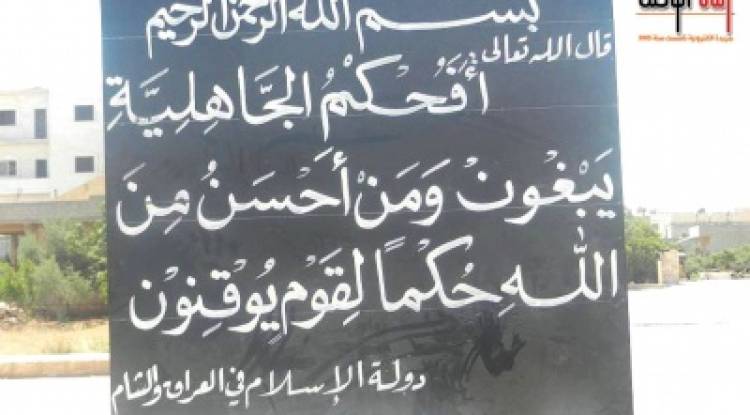 بسم الله الرحمن الرحيم
قال الله تعالى
أَفَحُكْمُ الجَاهِلِيَّةِ
يَبْغُونَ وَمَنْ أَحْسَنُ مِنَ
اللهِ حُكْمًا لِقَوْمٍ يُوقِنُونَ
دولة الإسلام في العراق والشام